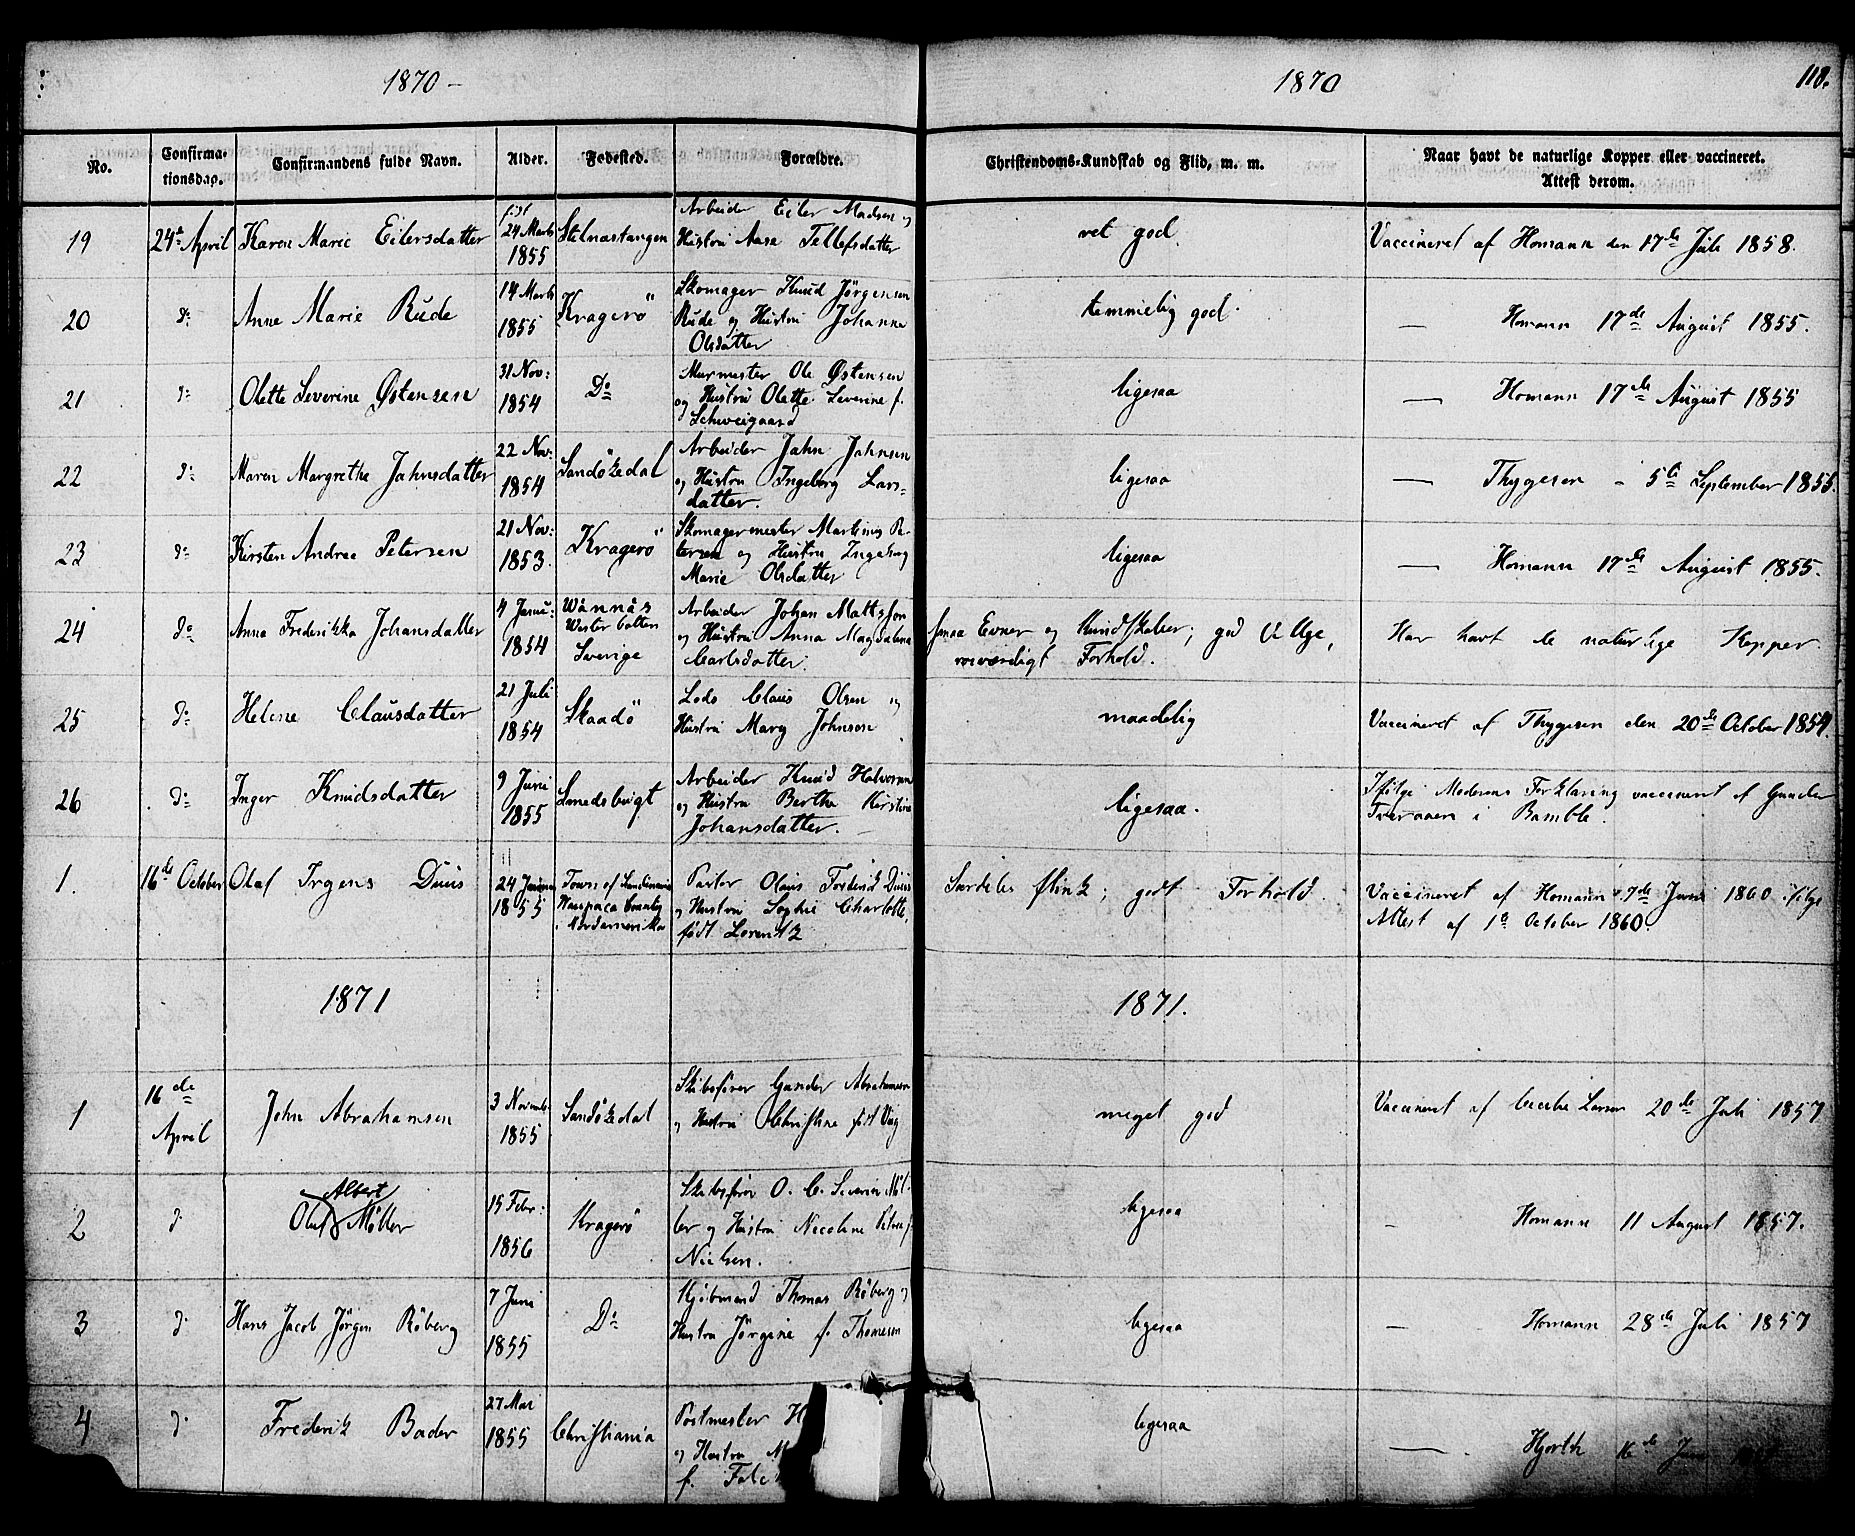 1870 –
1870
118.
No.
Confirma-
tionsdag.
Confirmandens fulde Navn.
Alder.
Fødested.
Forældre.
Christendoms-Kundskab og Flid, m. m.
Naar havt de naturlige Kopper eller vaccineret.
Attest derom.
19
24de April
Karen Marie Eilersdatter
født
24 Marts
1855
Stelnastangen
Arbeider Eiler Madsen og
Hustru Aase Tellefsdatter
ret god.
Vaccineret af Homann den 17de Juli 1858.
20
do
Anne Marie Rude
14 Marts
1855
Kragerö
Skomager Knud Jörgensen
Rude og Hustru Johanne
Olsdatter
temmelig god.
— Homann 17de August 1855.
21
do
Olette Severine Østensen
31 Nov:
1854
Do
Murmester Ole Østensen
og Hustru Olette Severine f.
Schweigaard
ligesaa
— Homann 17de August 1855
22
do
Maren Margrethe Jahnsdatter
22 Nov:
1854
Sandökedal
Arbeider Jahn Jahnsen
og Hustru Ingeborg Lars=
datter.
ligesaa
— Thygesen - 5te September 1855.
23
do
Kirsten Andrea Petersen
21 Nov:
1853.
Kragerö
Skomagermester Martinus Pe-
tersen og Hustru Ingeborg
Marie Olsdatter
ligesaa
— Homann 17de August 1855.
24
Do
Anna Frederikka Johansdatter
4 Janu:
1854
Wännäs
Wester botten
Sverige
Arbeider Johan Mattsson
og Hustru Anna Magdalena
Carlsdatter.
smaa Evner og Kundskaber; god Villge,
rosværdigt Forhold.
Har havt de naturlige Kopper.
25
Do
Helene Clausdatter
21 Juli
1854
Skaadö
Lods Claus Olsen og
Hustru Marg Johnsen
maadelig
Vaccineret af Thygesen den 20de October 1854.
26
Do
Inger Knudsdatter
9 Juni
1855
Smedsbugt
Arbeider Knud Halvorsen
og Hustru Berthe Kirstine
Johansdatter.
ligesaa.
Ifölge Moderens Forklaring vaccineret af Gunder
Tveraaen i Bamble.
1.
16de October
Olaf Irgens Duus
24 Januar
1855
Town of Scandinavia
Waupaca County
Nordamerika
Pastor Olaus Frederik Duus
og Hustru Sophie Charlotte,
født Lorentz
Særdeles flink; godt Forhold.
Vaccineret af Homann 7de Juni 1860 ifølge
Attest af 1te October 1860.
1871
1871.
1
16 de
April
John Abrahamsen
3 Novemb
1855
Sandökedal
Skibsfører Gunder Abrahamsen
og Hustru Christine født Wiig
meget god
Vaccineret af Cecilie Larsen 20de Juli 1857
2
do
Albert
Oluf Møller
15 Febr:
1856
Kragerö
Skibsfører O. C. Severin Möl-
ler og Hustru Nicoline Petrea f.
Nielsen.
ligesaa
- Homann 11 August 1857.
3
do
Hans Jacob Jörgen Röberg
7 Juni
1855
Do
Kjöbmand Thomas Röberg og
Hustru Jörgine f. Thomesen
ligesaa
— Homann 28de Juli 1857
4
do
Frederik Bader
27 Mai
1855
Christiania
Postmester H
og Hustru M
f. Falc
ligesaa
— Hjorth 16de